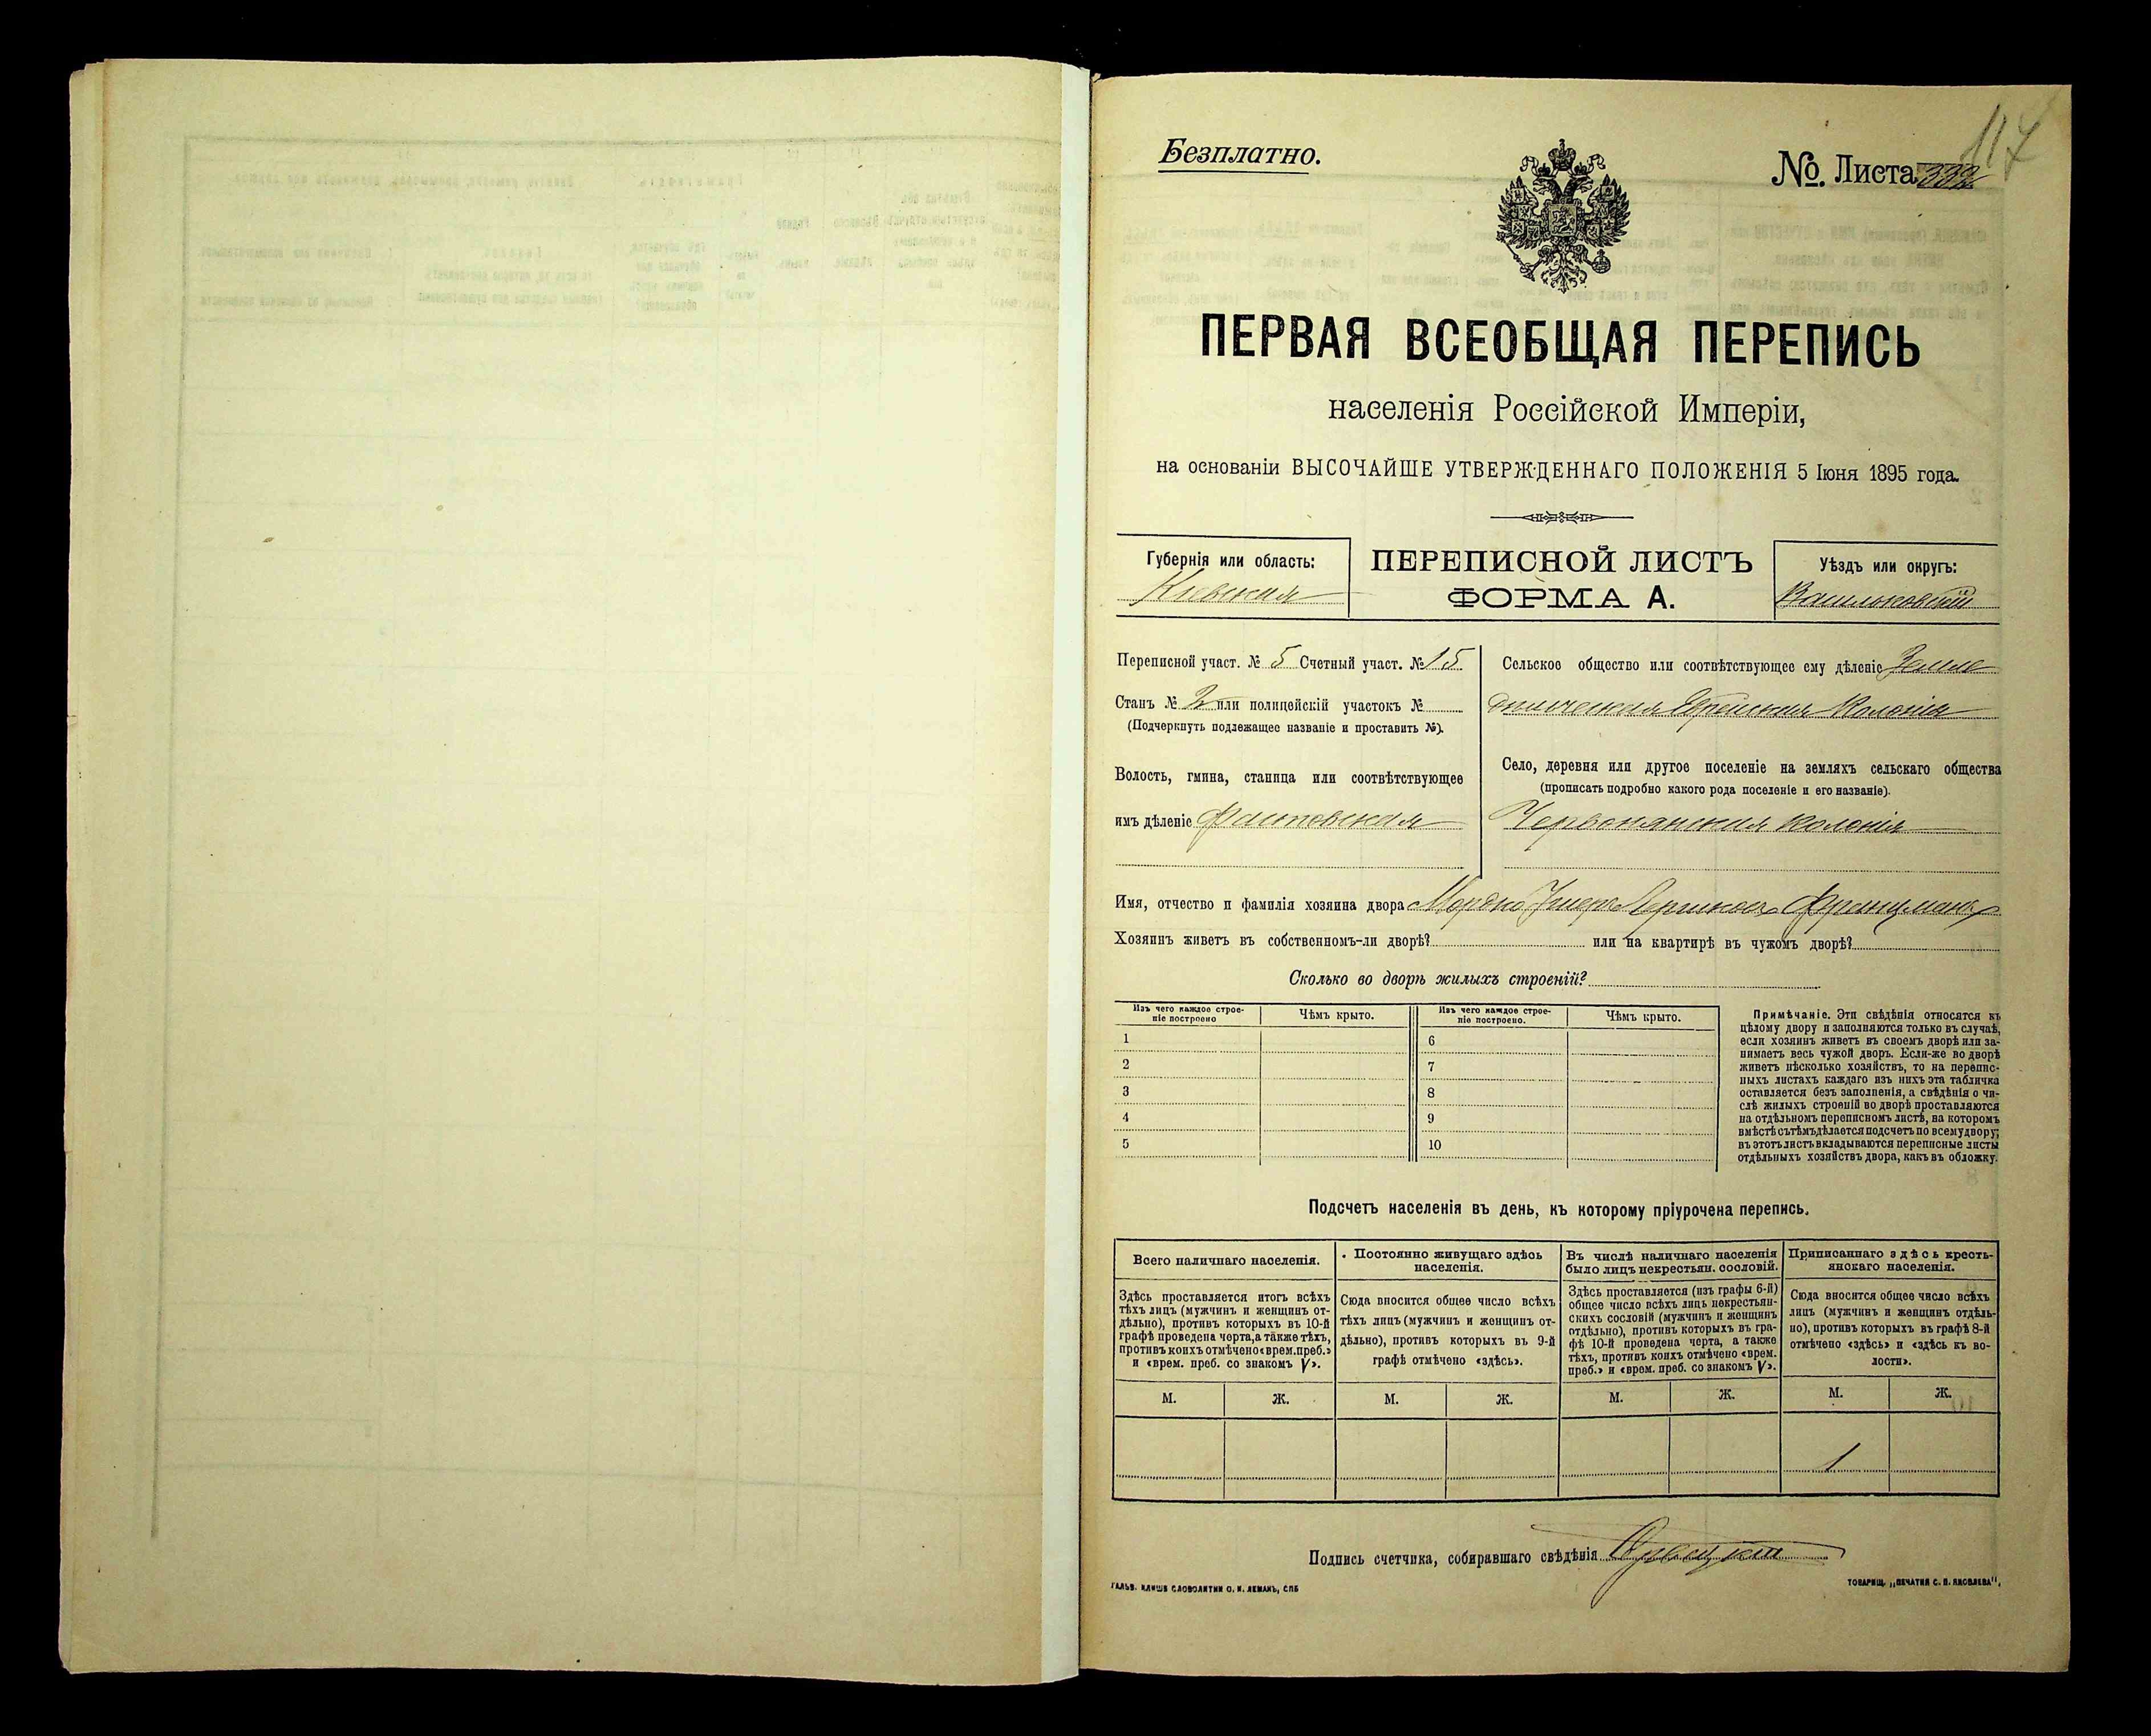 117
Безплатно.
№. Листа 332
ПЕРВАЯ ВСЕОБЩАЯ ПЕРЕПИСЬ
населенія Россійской Имперіи,
на основаніи ВЫСОЧАЙШЕ УТВЕРЖДЕННАГО ПОЛОЖЕНІЯ 5 Іюня 1895 года.
Губернія или область:
Кіевская
ПЕРЕПИСНОЙ ЛИСТЪ
ФОРМА А.
Уѣздъ или округъ:
Васильковскій
Переписной участ. № 5 Счетный участ. № 15
Станъ № 2 или полицейскій участокъ №
(Подчеркнуть подлежащее названіе и проставить №).
Волость, гмина, станица или соотвѣтствующее
имъ дѣленіе Фастовская
Сельское общество или соотвѣтствующее ему дѣленіе Земле
дѣльческая Еврейская Колонія
Село, деревня или другое поселеніе на земляхъ сельскаго общества
(прописать подробно какого рода поселеніе и его названіе).
Червонянская колонія
Имя, отчество и фамилія хозяина двора Мордко Лершковъ Френцманъ
Хозяинъ живетъ въ собственномъ-ли дворѣ? или на квартирѣ въ чужомъ дворѣ?
Сколько во дворѣ жилыхъ строеній?
Изъ чего каждое строе-
ніе построено
Чѣмъ крыто.
Изъ чего каждое строе-
ніе построено.
Чѣмъ крыто.
1 6
2 7
3 8
4 9
5 10
Примѣчаніе. Эти свѣдѣнія относятся къ
цѣлому двору и заполняются только въ случаѣ,
если хозяинъ живетъ въ своемъ дворѣ или за-
нимаетъ весь чужой дворъ. Если-же во дворѣ
живетъ нѣсколько хозяйствъ, то на перепис-
ныхъ листахъ каждаго изъ нихъ эта табличка
оставляется безъ заполненія, а свѣдѣнія о чи-
слѣ жилыхъ строеній во дворѣ проставляются
на отдѣльномъ переписномъ листѣ, на которомъ
вмѣстѣ сътѣмъ дѣлается подсчетъ по всему двору;
въ этотъ листъ вкладываются переписные листы
отдѣльныхъ хозяйствъ двора, какъ въ обложку.
Подсчетъ населенія въ день, къ которому пріурочена перепись.
Всего наличнаго населенія.
Здѣсь проставляется итогъ всѣхъ
тѣхъ лицъ (мужчинъ и женщинъ от-
дѣльно), противъ которыхъ въ 10-й
графѣ проведена черта, а также тѣхъ,
противъ коихъ отмѣчено «врем. преб.»
и «врем. преб. со знакомъ V».
Постоянно живущаго здѣсь
населенія.
Сюда вносится общее число всѣхъ
тѣхъ лицъ (мужчинъ и женщинъ от-
дѣльно), противъ которыхъ въ 9-й
графѣ отмѣчено «здѣсь».
Въ числѣ наличнаго населенія
было лицъ некрестьян. сословій.
Здѣсь проставляется (изъ графы 6-й)
общее число всѣхъ лицъ некрестьян-
скихъ сословій (мужчинъ и женщинъ
отдѣльно), противъ которыхъ въ гра-
фѣ 10-й проведена черта, а также
тѣхъ, противъ коихъ отмѣчено «врем.
преб.» и «врем. преб. со знакомъ V».
Приписаннаго здѣсь кресть-
янскаго населенія.
Сюда вносится общее число всѣхъ
лицъ (мужчинъ и женщинъ отдѣль-
но), противъ которыхъ въ графѣ 8-й
отмѣчено «здѣсь» и «здѣсь къ во-
лости».
М. Ж. М. Ж. М. Ж. М. Ж.
1
Подпись счетчика, собиравшаго свѣдѣнія
ГАЛЬВ. КЛИШЕ СЛОВОЛИТНИ О. И. ЛЕМАНЪ, СПБ
ТОВАРИЩ. „ПЕЧАТНЯ С. П. ЯКОВЛЕВА",